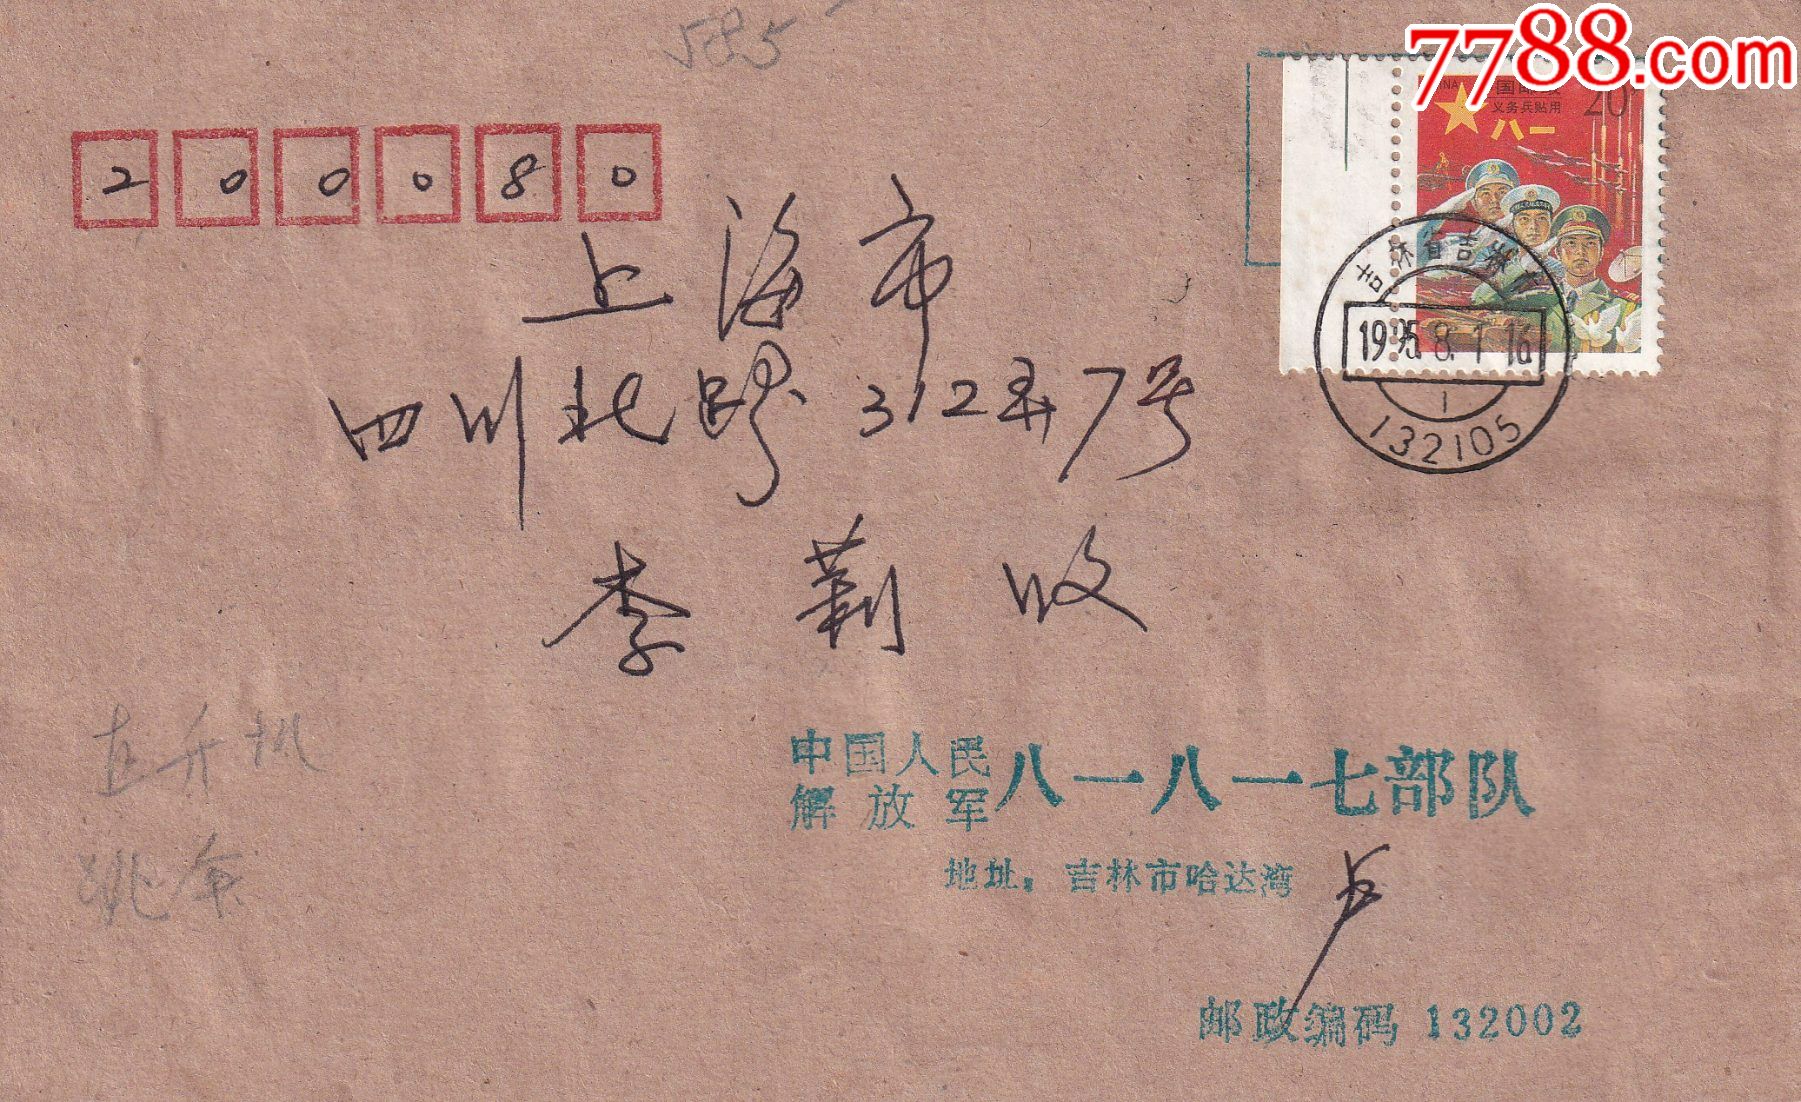 7788.com
中国邮政
义务兵贴用
20
八一
200080
上海市
四川北路312弄7号
李莉收
吉林省吉林
1995.8.1.16
1
132105
直升机
中国人民解放军八一八一七部队
地址：吉林市哈达湾
邮政编码 132002